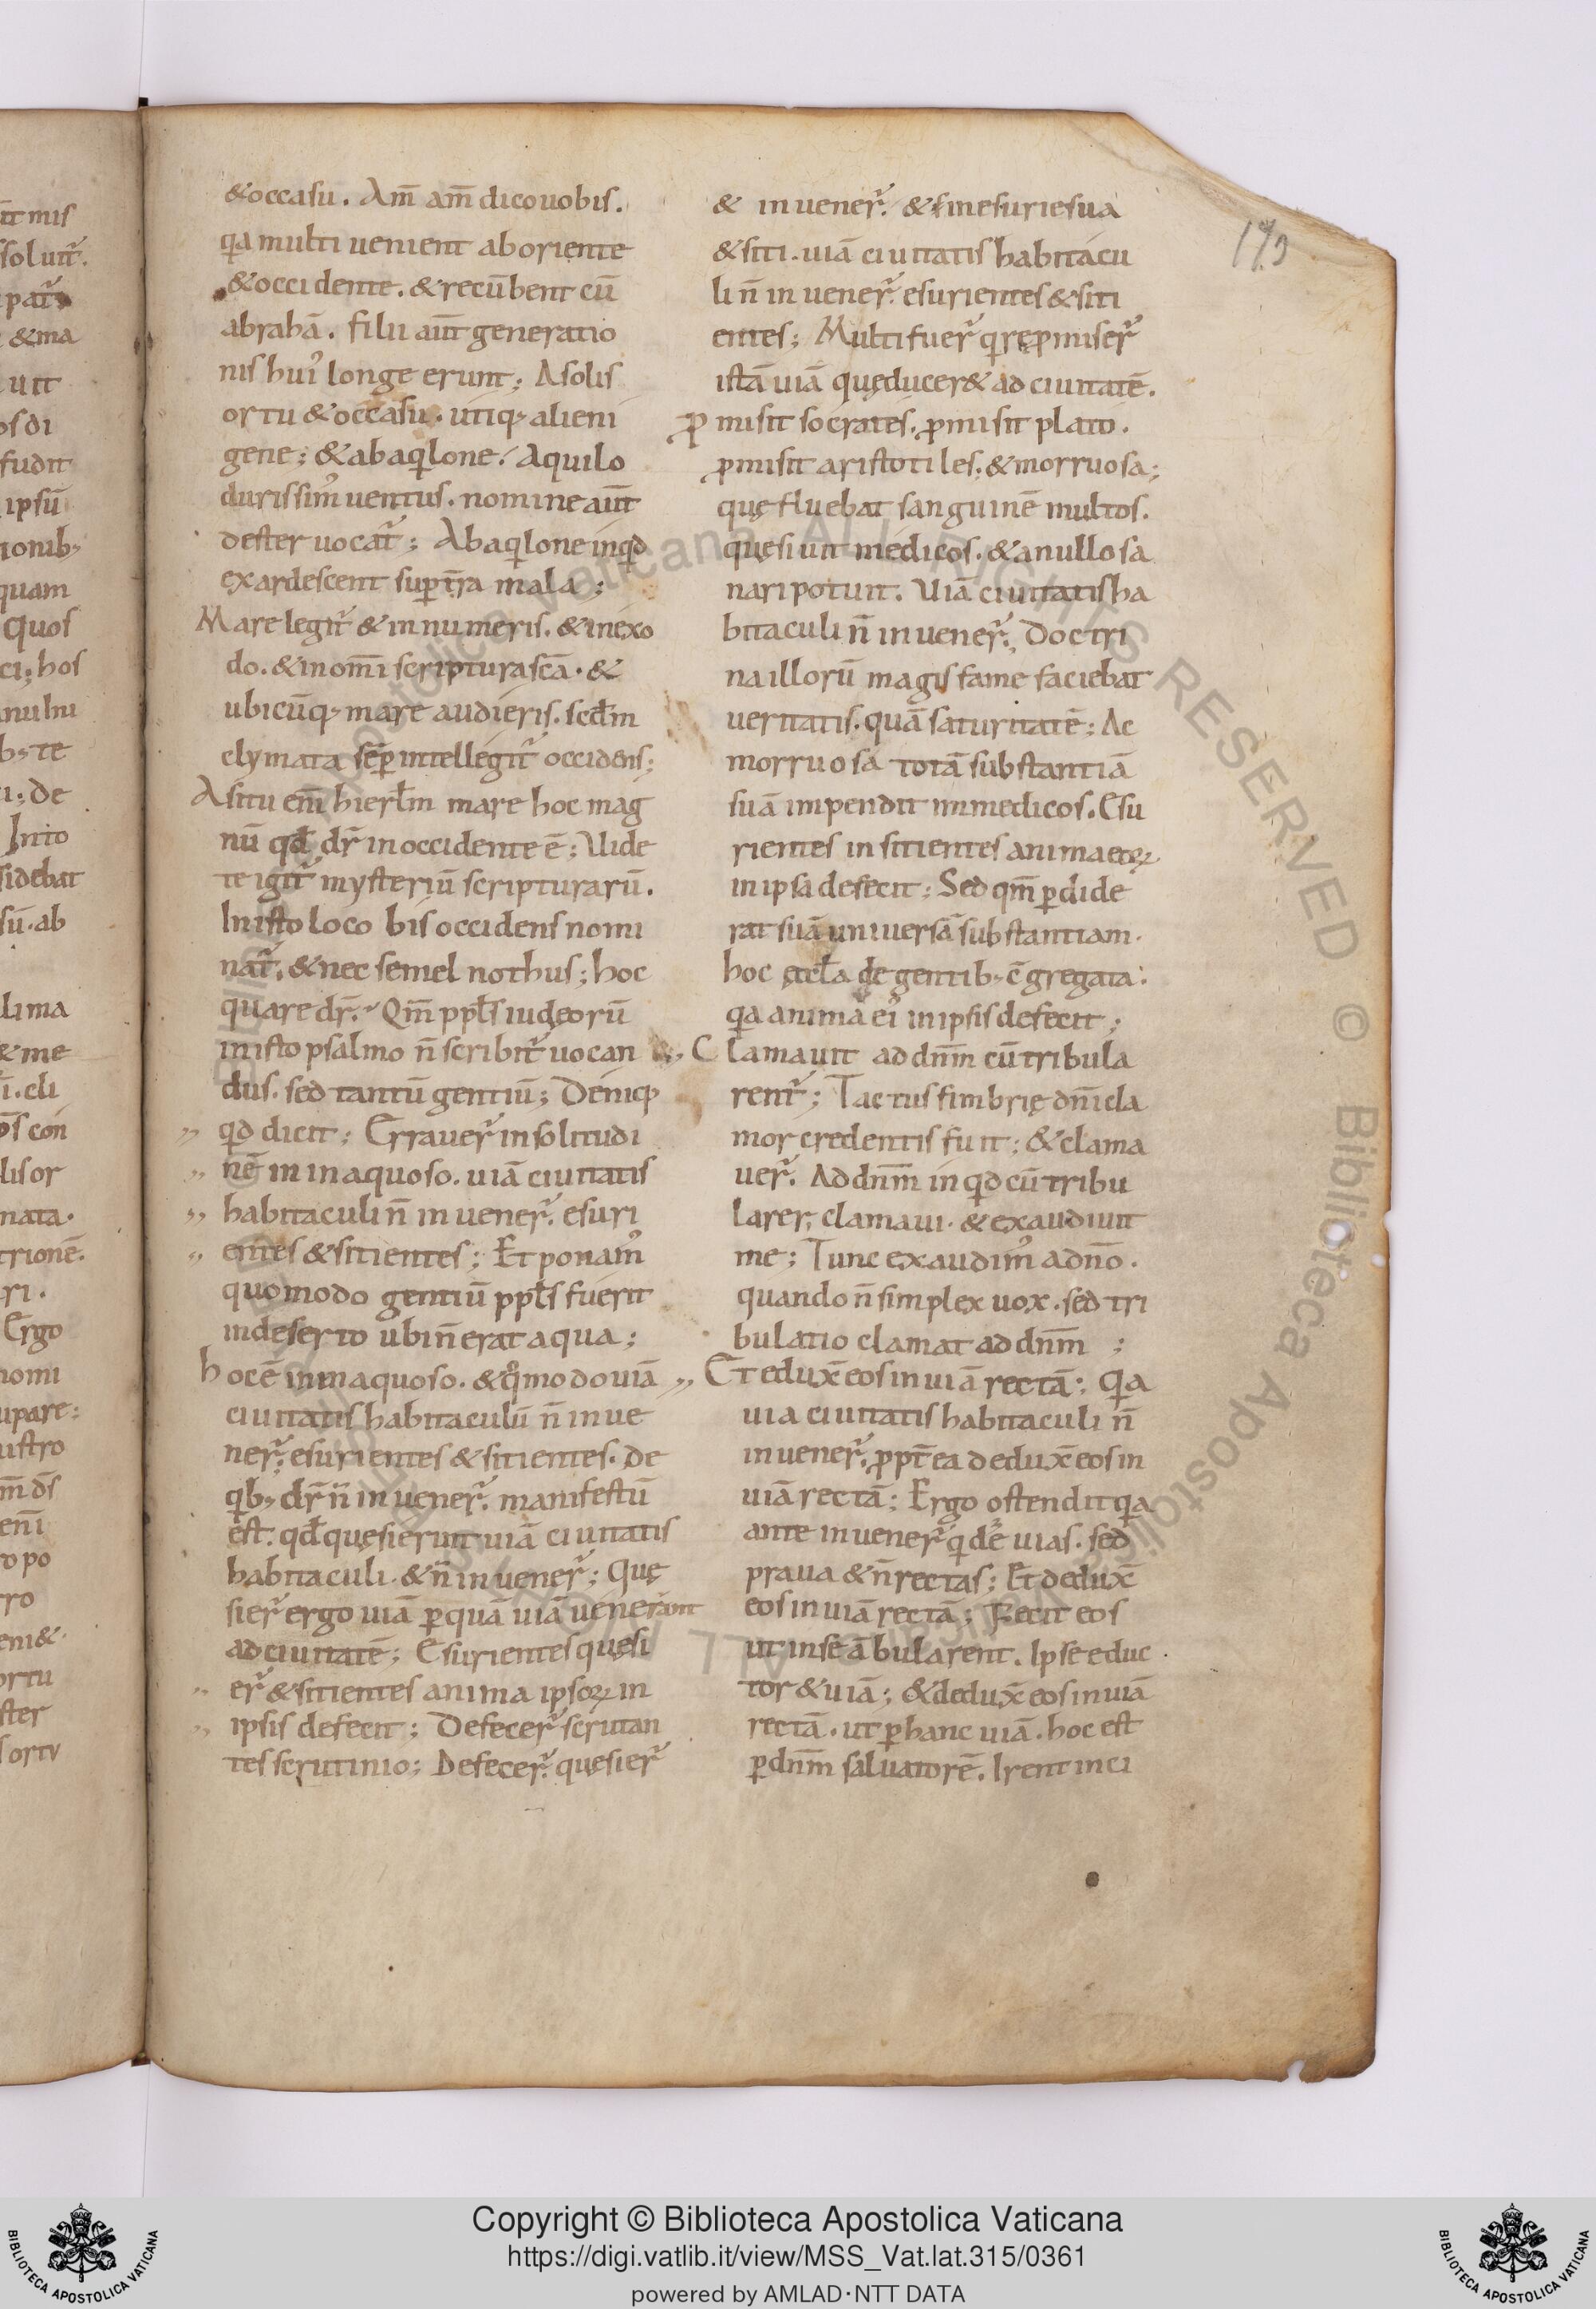 179
&occasu. Am̄ am̄ dico uobis.
qa multi uenient ab oriente
&occidente. & recūbent cū
abrahā. filii aūt generatio
nis hui' longe erunt; A solis
ortu & occasu. utiq; alieni
gene; & ab aqilone. Aquilo
durissim' uentus. nomine aūt
dexter uocat̄; Ab aqilone inqd
exardescent sup t̄ra mala;
Mare legit̄ & in numeris. & in exo
do. & in om̄i scriptura scā. &
ubicūq; mare audieris. scdm̄
clymata sēp intellegit̄ occidens;
A situ eni̅ hierl̄m mare hoc mag
nū qd̄ dr̄ in occidente ē; Uide
te igit̄ mysteriū scripturarū.
In isto loco bis occidens nomi
nat̄. & nec semel nothus; hoc
quare dr̄. Qm̄ ppl̄s iudęorū
in isto psalmo n̄ scribit̄ uocan
dus. sed tantū gentiū; Deniq;
qd dicit; Errauer̄ in solitudi
nē in inaquoso. uiā ciuitatis
habitaculi n̄ inuener̄. esuri
entes & sitientes; Et ponam'
quomodo gentiū ppl̄s fuerit
in deserto ubi n̄ erat aqua;
hoc ē in inaquoso. & qomodo uiā
ciuitatis habitaculū n̄ inue
ner̄. esurientes & sitientes. De
qib; dr̄ n̄ inuener̄. manifestū
est. qd̄ quęsierunt uiā ciuitatis
habitaculi. & n̄ inuener̄; Quę
sier̄ ergo uiā p quā uiā uenerant
ad ciuitatē; Esurientes quęsi
er̄ & sitientes anima ipsoꝝ in
ipsis defecit; Defecer̄ scrutan
tes scrutinio; Defecer̄. quęsier̄
& inuener̄. & fine suriesua
& siti. uiā ciuitatis habitacu
li n̄ inuener̄. esurientes & siti
entes; Multi fuer̄ qi rep̱miser̄
istā uiā quę ducer& ad ciuitatē.
ꝓmisit socrates. ꝓmisit plato.
ꝓmisit aristotiles. & morruosa;
quę fluebat sanguinē multos.
quęsiuit medicos. & a nullo sa
nari potuit. Uiā ciuitatis ha
bitaculi n̄ inuener̄. Doctri
na illorū magis fame faciebat
ueritatis. quā saturitatē; Ac
morruosa totā substantiā
suā impendit in medicos. Esu
rientes in sitientes anima eoꝝ
in ipsa defecit; Sed qm̄ pdide
rat suā uniuersā substantiam.
hoc ęccl̄a de gentib; c̄gregata.
qa anima ei' in ipsis defecit;
Clamauit ad dn̄m cū tribula
rent̄; Tactus fimbrię dn̄i cla
mor credentis fuit; & clama
uer̄. Ad dn̄m inqd cū tribu
larer; clamaui. & exaudiuit
me; Tunc exaudim' a dn̄o.
quando n̄ simplex uox. sed tri
bulatio clamat ad dn̄m;
Et edux̄ eos in uiā rectā; Qa
uia ciuitatis habitaculi n̄
inuener̄. ppt̄ea dedux̄ eos in
uiā rectā; Ergo ostendit qa
ante inuener̄ qidē uias. sed
praua & n̄ rectas; Et dedux̄
eos in uiā rectā; Fecit eos
ut in se ābularent. Ipse educ
tor & uiā; & dedux̄ eos in uiā
rectā. ut p hanc uiā. hoc est
p dn̄m saluatorē. Irent in ci
Copyright © Biblioteca Apostolica Vaticana
https://digi.vatlib.it/view/MSS_Vat.lat.315/0361
powered by AMLAD·NTT DATA
BIBLIOTECA APOSTOLICA VATICANA
BIBLIOTECA APOSTOLICA VATICANA